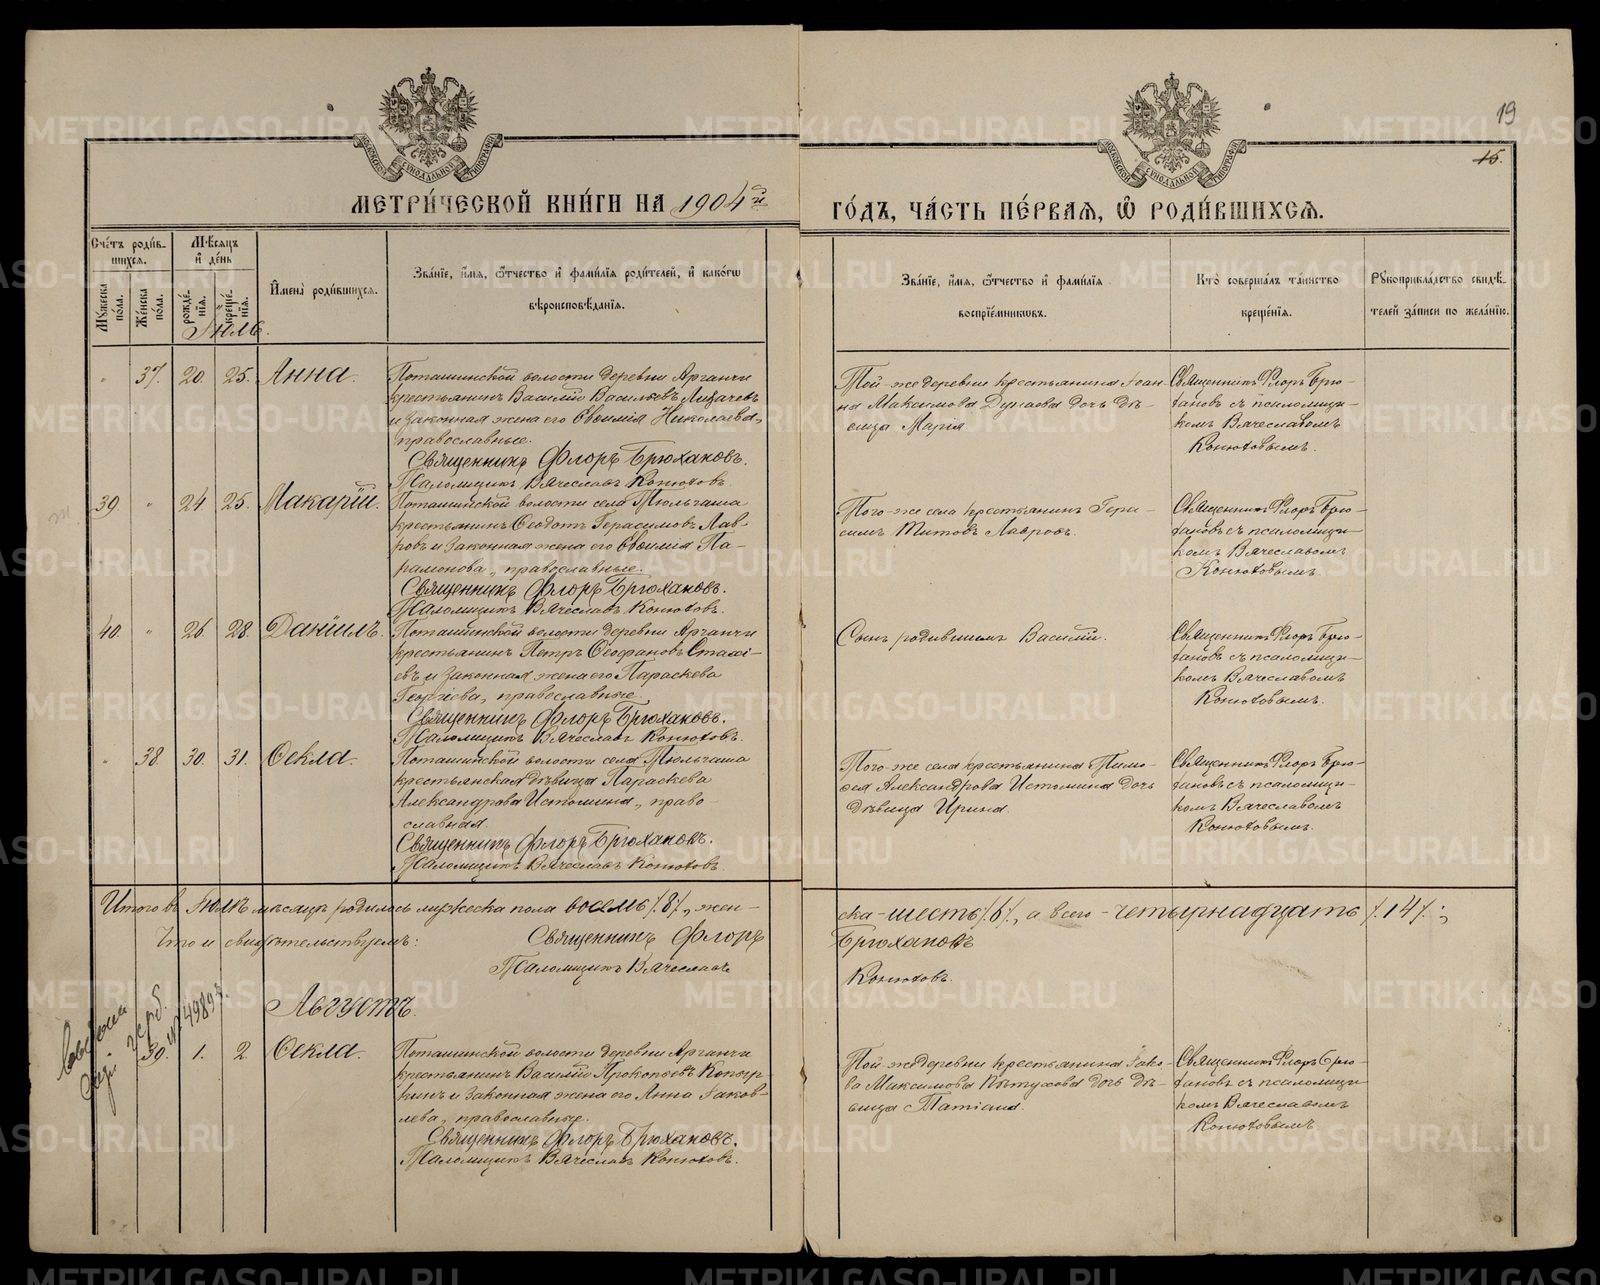 19
15.
МЕТРИ́ЧЕСКОЙ КНИ́ГИ НА 1904й
ГО́ДЪ, ЧА́СТЬ ПЕ́РВАЯ, Ѡ҆ РОДИ́ВШИХСЯ.
Сче́тъ роди́в-
шихся.
Мꙋ́жеска по́ла.
Же́нска по́ла.
Мѣ́сяцъ
и҆ де́нь
рожде́нїя.
креще́нїя.
Имена̀ роди́вшихся.
Зва́нїе, и҆́мя, ѻ҆́тчество и҆ фами́лїя роди́телей, и҆ како́гѡ
вѣроисповѣ́данїя.
Зва́нїе, и҆́мя, ѻ҆́тчество и҆ фами́лїя
воспрїе́мникѡвъ.
Кто̀ соверша́лъ та́инство
креще́нїя.
Рꙋкоприкла́дство свидѣ́-
телей за́писи по жела́нїю.
Іюль.
" 37. 20. 25. Анна.
Поташинской волости деревни Арганчи
крестьянинъ Василій Васильевъ Лизачевъ
и законная жена его Евѳимія Николаева,
православные.
Священникъ Флоръ Брюхановъ.
Псаломщикъ Вячеславъ Конюховъ.
Той-же деревни крестьянина Іоан-
на Максимова Дунаева дочь дѣ-
вица Марія
Священникъ Флоръ Брю-
хановъ съ псаломщи-
комъ Вячеславомъ
Конюховымъ.
39. " 24. 25. Макарій.
Поташинской волости села Тюльгаша
крестьянинъ Ѳеодотъ Герасимовъ Лав-
ровъ и законная жена его Евѳимія Па-
рамонова, православные.
Священникъ Флоръ Брюхановъ.
Псаломщикъ Вячеславъ Конюховъ.
Того-же села крестьянинъ Гера-
симъ Титовъ Лавровъ.
Священникъ Флоръ Брю-
хановъ съ псаломщи-
комъ Вячеславомъ
Конюховымъ.
40. " 26. 28. Даніилъ.
Поташинской волости деревни Арганчи
крестьянинъ Петръ Ѳеофановъ Стахі-
евъ и законная жена его Параскева
Георгіева, православные.
Священникъ Флоръ Брюхановъ.
Псаломщикъ Вячеславъ Конюховъ.
Сынъ родившихъ Василій.
Священникъ Флоръ Брю-
хановъ съ псаломщи-
комъ Вячеславомъ
Конюховымъ.
" 38. 30. 31. Ѳекла.
Поташинской волости села Тюльгаша
крестьянская дѣвица Параскева
Александрова Истомина, право-
славная.
Священникъ Флоръ Брюхановъ.
Псаломщикъ Вячеславъ Конюховъ.
Того-же села крестьянина Тимо-
ѳея Александрова Истомина дочь
дѣвица Ирина.
Священникъ Флоръ Брю-
хановъ съ псаломщи-
комъ Вячеславомъ
Конюховымъ.
Итого въ Іюлѣ мѣсяцѣ родилось мужеска пола восемь /8/, жен-
ска-шесть /6/, а всего-четырнадцать /14/;
Что и свидѣтельствуемъ: Священникъ Флоръ
Брюхановъ
Псаломщикъ Вячеславъ
Конюховъ.
Августъ.
39. 1. 2. Ѳекла.
Поташинской волости деревни Арганчи
крестьянинъ Василій Прокопьевъ
и законная жена его Анна Іаков-
лева, православные.
Священникъ Флоръ Брюхановъ.
Псаломщикъ Вячеславъ Конюховъ.
Той-же деревни крестьянина Іако-
ва Максимова дочь дѣ-
вица Татіана.
Священникъ Флоръ Брю-
хановъ съ псаломщи-
комъ Вячеславомъ
Конюховымъ.
METRIKI.GASO-URAL.RU